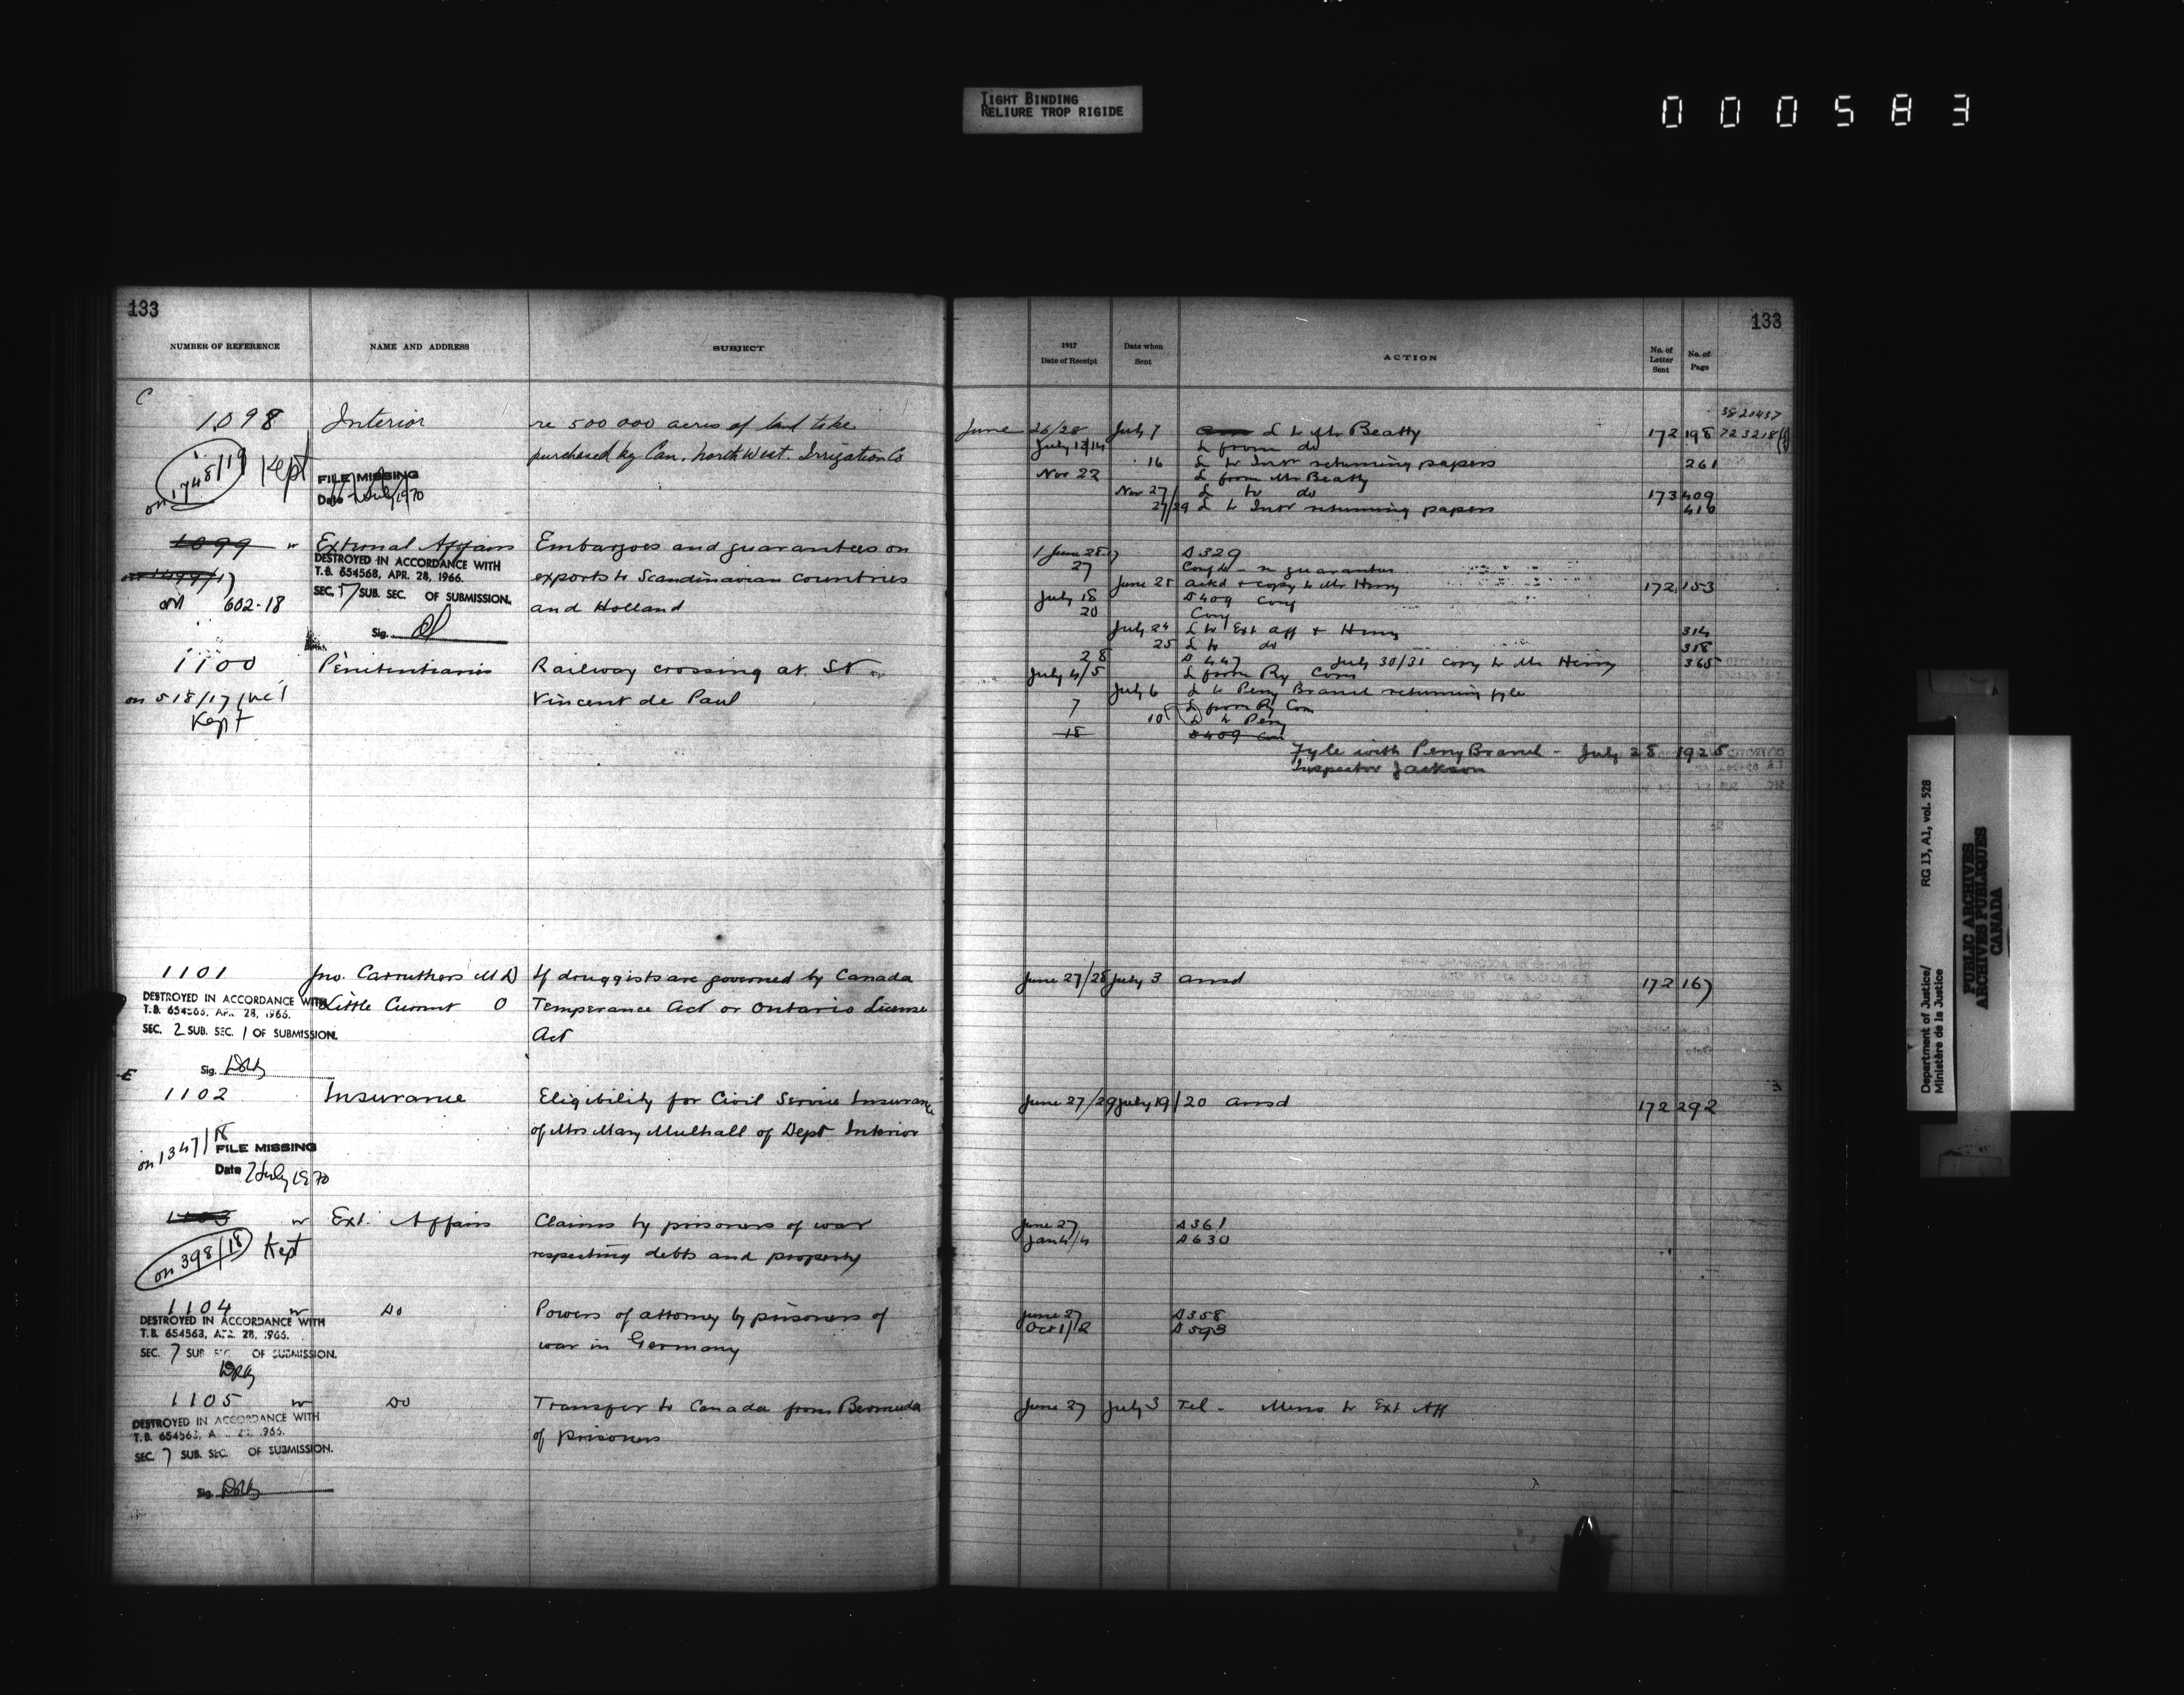 TIGHT BINDING
RELIURE TROP RIGIDE
000583
133
NUMBER OF REFERENCE NAME AND ADDRESS SUBJECT
C
1098 Interior re 500 000 acres of land to be
purchased by Can. North West. Irrigation Co
on 1748/19 Kept
FILE MISSING
Date 2 July 1970
1099 w External Affairs Embargoes and guarantees on
DESTROYED IN ACCORDANCE WITH
T.B. 654568, APR. 28, 1966.
exports to Scandinavian countries
SEC. 7 SUB. SEC. OF SUBMISSION.
on 602-18 and Holland
Sig.
1100 Penitentiaries Railway crossing at St
on 518/17 Vincent de Paul
Kept
1101 Jno. Carruthers M D If druggists are governed by Canada
DESTROYED IN ACCORDANCE WITH
T.B. 654568, APR. 28, 1966.
Little Current O Temperance Act or Ontario License
SEC. 2 SUB. SEC. 1 OF SUBMISSION.
Act
Sig.
E
1102 Insurance Eligibility for Civil Service Insurance
of Mrs Mary Mulhall of Dept Interior
on 1347/18
FILE MISSING
Date 2 July 1970
1103 w Ext. Affairs Claims by prisoners of war
on 398/18 Kept respecting debts and property
1104 w Do Powers of attorney by prisoners of
DESTROYED IN ACCORDANCE WITH
T.B. 654568, APR. 28, 1966.
war in Germany
SEC. 7 SUB SEC. OF SUBMISSION.
1105 w Do Transfer to Canada from Bermuda
DESTROYED IN ACCORDANCE WITH
T.B. 654568, A 28, 1966.
of prisoners
SEC. 7 SUB. SEC. OF SUBMISSION.
Sig.
133
1917 Date of Receipt Date when Sent ACTION No. of Letter Sent No. of Page
3820437
June 26/28 July 7 L to Mr Beatty 172 198 723218
July 13/14 L from do
16 L to Intr returning papers 261
Nov 22 L from Mr Beatty
Nov 27 L to do 173 409
27/29 L to Intr returning papers 410
June 28 D 329
27 guarantee
June 28 ackd & copy to Mr Henry 172 153
July 18 D 409 Copy
20 Copy
July 24 L to Ext Aff & Henry 314
25 L to do 318
28 D 447 July 30/31 copy to Mr Henry 365
July 4/5 L from Ry Com
July 6 L to Peny Branch returning fyle
7 L from Ry Com
10 L to Peny
18 D 409
Fyle with Peny Branch - July 28 1925
Inspector Jackson
June 27/28 July 3 ansd 172 167
June 27/29 July 19/20 ansd 172 292
June 27 D 361
Jan 4/4 D 630
June 27 D 358
Oct 1/12 D 593
June 27 July 3 Tel - Memo to Ext Aff
Department of Justice/ RG 13, A1, vol. 528
Ministère de la Justice
PUBLIC ARCHIVES
ARCHIVES PUBLIQUES
CANADA